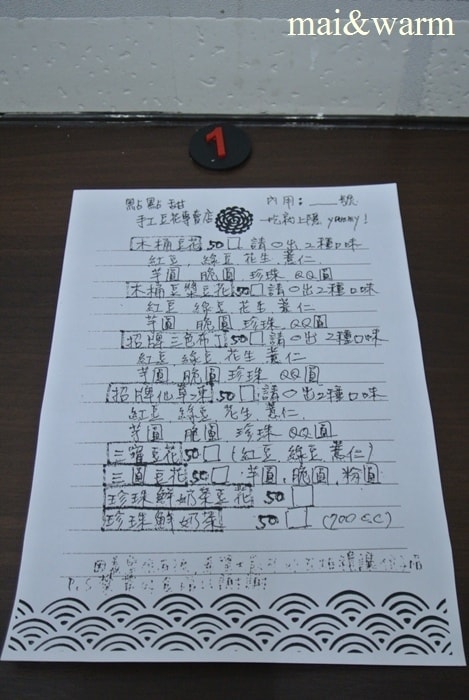 mai&warm
1
點點甜 內用：____號
手工豆花專賣店 一吃就上癮 yummy!
木桶豆花 50 □ 請○出2種口味
紅豆 綠豆 花生 薏仁
芋圓 脆圓 珍珠 QQ圓
木桶豆漿豆花 50 □ 請○出2種口味
紅豆 綠豆 花生 薏仁
芋圓 脆圓 珍珠 QQ圓
招牌三色布丁 50 □ 請○出2種口味
紅豆 綠豆 花生 薏仁
芋圓 脆圓 珍珠 QQ圓
招牌仙草凍 50 □ 請○出2種口味
紅豆 綠豆 花生 薏仁
芋圓 脆圓 珍珠 QQ圓
三寶豆花 50 □ (紅豆, 綠豆, 薏仁)
三圓豆花 50 □ 芋圓, 脆圓, 粉圓
珍珠鮮奶茶豆花 50 □
珍珠鮮奶茶 50 □ (700cc)
P.S